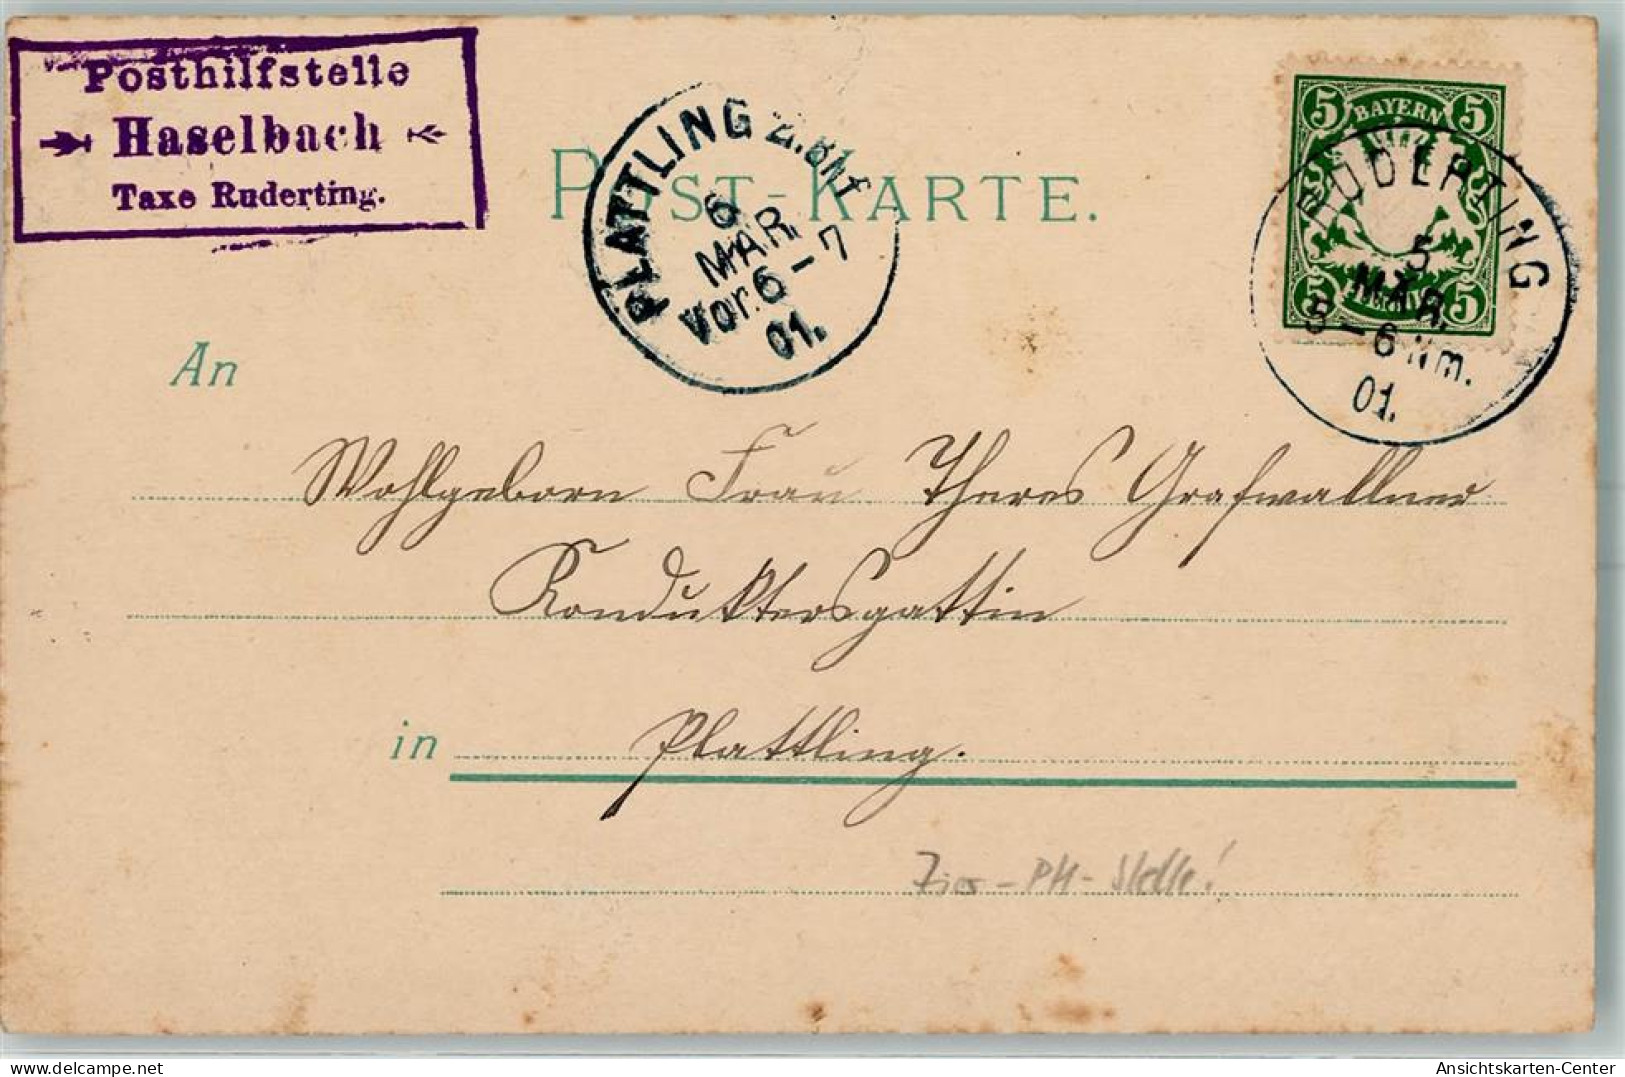 Posthilfstelle
Haselbach
Taxe Ruderting.
POST-KARTE.
PLATTLING Z.Bhf
6
MAR.
Vor. 6-7
01.
BAYERN
5 5
5 5
RUDERTING
5
MAR.
5-6 Nm.
01.
An
Wohlgeborn Frau Theres Grafwallner
Konduktersgattin
in Plattling.
Zier-PH-Stelle!
Ansichtskarten-Center